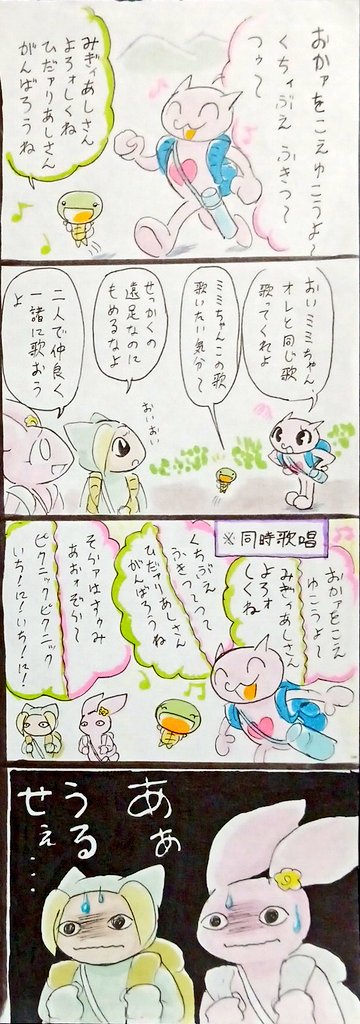 おかァをこえゆこうよ〜
くちィぶえ ふきつ〜
つゥ〜
みぎィあしさん
よろォしくね
ひだァりあしさん
がんばろうね
おいミミちゃん
オレと同じ歌
歌てくれよ
ミミちゃんこの歌
歌いたい気分〜
せっかくの
遠足なのに
もめるなよ
おいおい
二人で仲良く
一諸に歌おう
よ
※同時歌唱
おかァをこえ
ゆこうよ〜
みぎィあしさん
よろォ
しくね
くちぶえ
ふきつ〜つ〜
ひだァりあしさん
がんばろうね
そらァはすゥみ
あおォぞら〜
ピクニックピクニック
いち!に!いち!に!
あぁ
うる
せぇ…